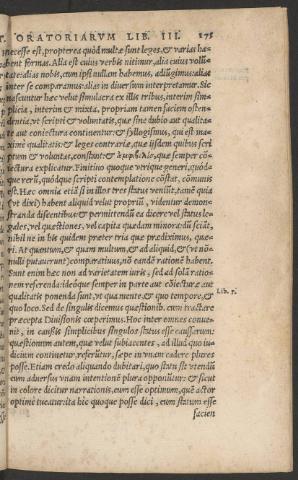 ORATORIARVM LIB. III. 275
necesse est, propterea quòd multæ sunt leges, & varias ha-
bent formas. Alia est cuius verbis nitimur, alia cuius volũ-
tate: alias nobis, cum ipsi nullam habemus, adiũgimus: alias
inter se comparamus: alias in diuersum interpretamur. Sic
nascuntur hæc velut simulacra ex illis tribus, interim sim-
plicia, interim & mixta, propriam tamen faciem osten-
dentia, vt scripti & voluntatis, quæ sine dubio aut qualita-
te aut coniectura continentur: & syllogismus, qui est ma-
ximè qualitatis: & leges contrariæ, quæ iisdem quibus scri
ptum & voluntas, constant: & quæ semper cõ-
iectura explicatur. Finitio quoque vtrique generi, quòd-
que rerũ, quódque scripti contemplatione cõstat, cõmunis
est. Hæc omnia etiã si in illos tres status veniũt, tamē quia
(vt dixi) habent aliquid velut propriũ, videntur demon-
stranda discentibus: & permittendũ ea dicere vel status le-
gales, vel quæstiones, vel capita quædam minora: dũ sciãt,
nihil ne in his quidem preter tria quæ prædiximus, quæ-
ri. At quantum, & quam multum, & ad aliquid, & (vt nõ-
nulli putauerunt) comparatiuus, nõ eandē rationē habent.
Sunt enim hæc non ad varietatem iuris, sed ad solã ratio-
nem referenda: ideóque semper in parte aut cõiecturæ aut
qualitatis ponenda sunt, vt qua mente, & quo tempore, &
quo loco. Sed de singulis dicemus quæstionib. cum tractare
præcepta Diuisionis cœperimus. Hoc inter omnes conue-
nit, in causis simplicibus singulos status esse causarum:
quæstionum autem, quæ velut subiacentes, ad illud quo iu-
dicium continetur, referũtur, sæpe in vnam cadere plures
posse. Etiam credo aliquando dubitari, quo statu sit vtendũ
cum aduersus vnam intentionē plura opponũtur: & sicut
in colore dicitur narrationis, eum esse optimum, quē actor
optimè tueatur: ita hîc quoque posse dici, eum statum esse
facien
Lib. 7.